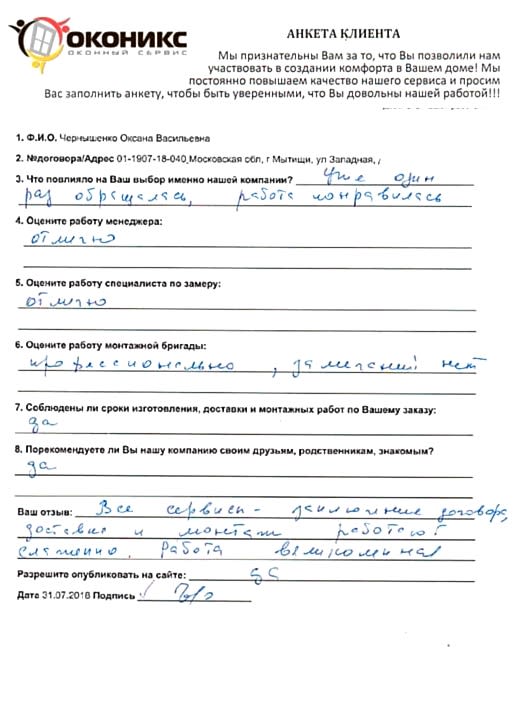 ОКОНИКС
ОКОННЫЙ СЕРВИС
АНКЕТА КЛИЕНТА
Мы признательны Вам за то, что Вы позволили нам
участвовать в создании комфорта в Вашем доме! Мы
постоянно повышаем качество нашего сервиса и просим
Вас заполнить анкету, чтобы быть уверенными, что Вы довольны нашей работой!!!
1. Ф.И.О. Чернышенко Оксана Васильевна
2. №договора/Адрес 01-1907-18-040,Московская обл, г Мытищи, ул Западная,
3. Что повлияло на Ваш выбор именно нашей компании? Уже один
раз обращалась, работа понравилась
4. Оцените работу менеджера:
отлично
5. Оцените работу специалиста по замеру:
отлично
6. Оцените работу монтажной бригады:
профессионально, замечаний нет
7. Соблюдены ли сроки изготовления, доставки и монтажных работ по Вашему заказу:
да
8. Порекомендуете ли Вы нашу компанию своим друзьям, родственникам, знакомым?
да
Ваш отзыв: Все сервисы - заключение договора,
доставка и монтаж работают
слаженно. Работа великолепная
Разрешите опубликовать на сайте: да
Дата 31.07.2018 Подпись